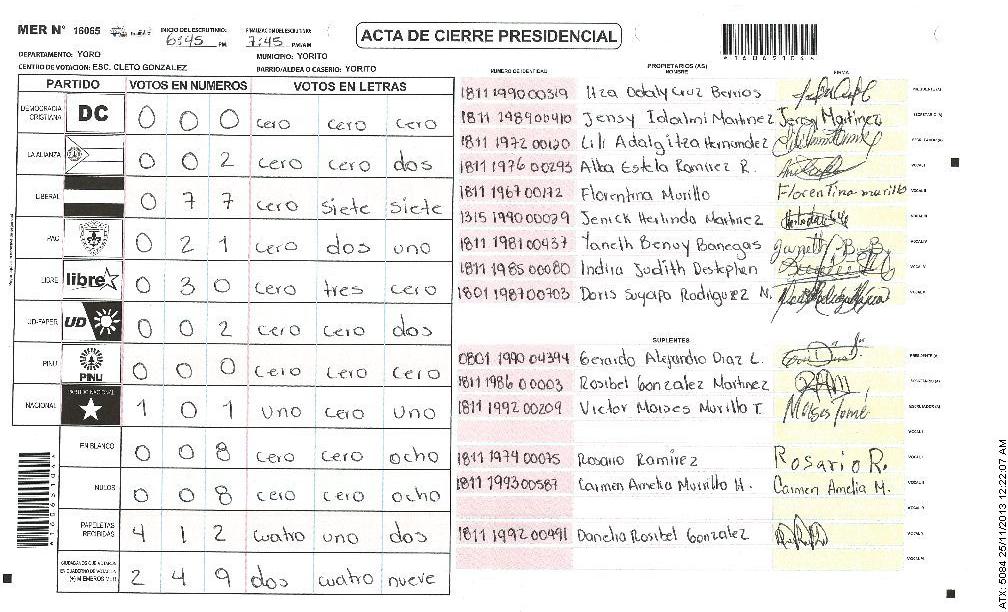 MER N° 16065
INICIO DEL ESCRUTINIO: 6:45 PM
FINALIZACION DEL ESCRUTINIO: 7:45 P.M/AM
ACTA DE CIERRE PRESIDENCIAL
DEPARTAMENTO: YORO
MUNICIPIO: YORITO
CENTRO DE VOTACION: ESC. CLETO GONZALEZ
BARRIO/ALDEA O CASERIO: YORITO
PARTIDO VOTOS EN NUMEROS VOTOS EN LETRAS
DEMOCRACIA CRISTIANA DC 0 0 0 cero cero cero
LA ALIANZA 0 0 2 cero cero dos
LIBERAL 0 7 7 cero siete siete
PAC 0 2 1 cero dos uno
LIBRE libre 0 3 0 cero tres cero
UD-FAPER UD 0 0 2 cero cero dos
PINU PINU 0 0 0 cero cero cero
NACIONAL PARTIDO NACIONAL 1 0 1 uno cero uno
EN BLANCO 0 0 8 cero cero ocho
NULOS 0 0 8 cero cero ocho
PAPELETAS RECIBIDAS 4 1 2 cuatro uno dos
CIUDADANOS QUE VOTARON EN CUADERNO DE VOTACION (+) MIEMBROS MER 2 4 9 dos cuatro nueve
NUMERO DE IDENTIDAD PROPIETARIOS (AS) NOMBRE FIRMA
1811 1990 00319 Itza Odaly Cruz Berrios PRESIDENTE (A)
1811 1989 00410 Jensy Idalmi Martinez Jensy Martinez SECRETARIO (A)
1811 1972 00120 Lili Adalgitza Hernandez ESCRUTADOR (A)
1811 1976 00293 Alba Estela Ramirez R. VOCAL I
1811 1967 00172 Florentina Murillo Florentina murillo VOCAL II
1315 1990 00029 Jenick Herlinda Martinez VOCAL III
1811 1981 00437 Yaneth Benuy Banegas VOCAL IV
1811 1985 00080 Indira Judith Destephen VOCAL V
1801 1987 00703 Doris Suyapa Rodriguez N. VOCAL VI
SUPLENTES
0801 1990 04394 Gerardo Alejandro Diaz L. PRESIDENTE (A)
1811 1986 00003 Rosibel Gonzalez Martinez SECRETARIO (A)
1811 1992 00209 Victor Moises Murillo T. Moises Tomé ESCRUTADOR (A)
1811 1974 00075 Rosario Ramirez Rosario R. VOCAL I
1811 1993 00587 Carmen Amelia Murrillo H. Carmen Amelia M. VOCAL II
1811 1992 00491 Danelia Rosibel Gonzalez
ATX: 5084 25/11/2013 12:22:07 AM